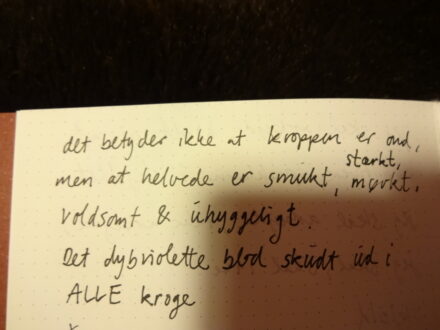 det betyder ikke at kroppen er ond,
stærkt,
men at helvede er smukt, mørkt,
voldsomt & uhyggeligt.
Det dybviolette blod skudt ud i
ALLE kroge